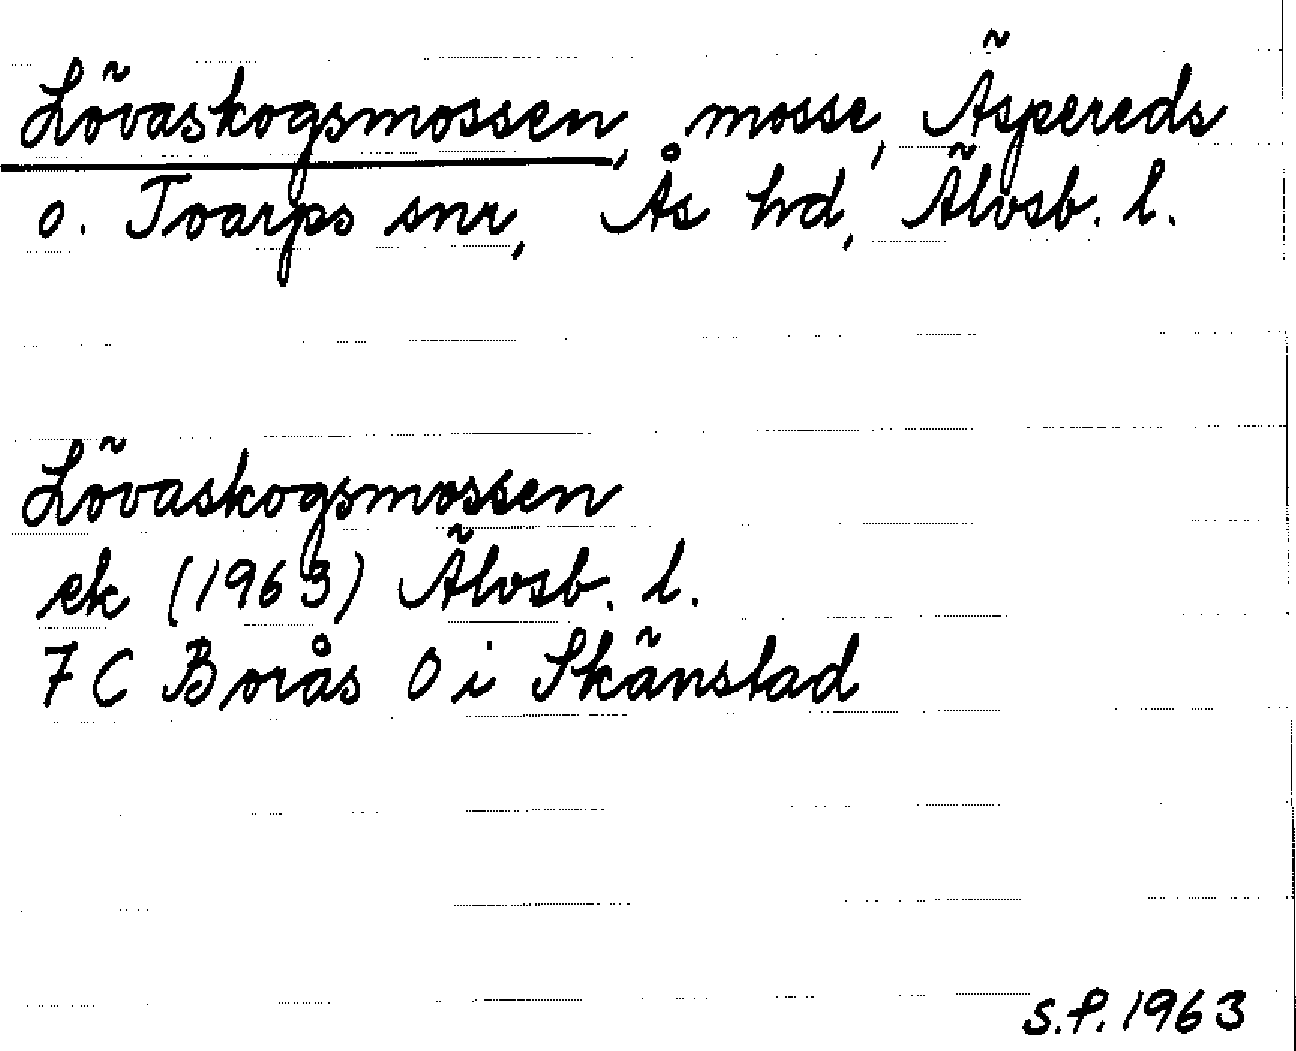 Lövaskogsmossen, mosse, Äspereds
o. Toarps snr, Ås hd, Älvsb. l.
Lövaskogsmossen
ek (1963) Älvsb. l.
7 C Borås O i Skänstad
S.P. 1963